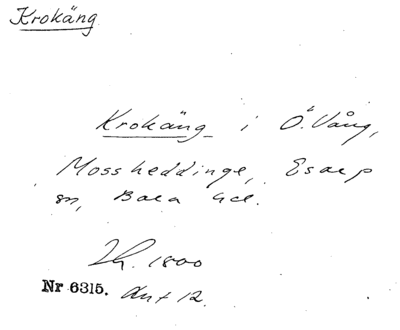 Krokäng
Krokäng i Ö. Vång,
Mossheddinge, Esarp
sn, Bara hd.
Lh. 1800
Nr 6315. Ant 12.